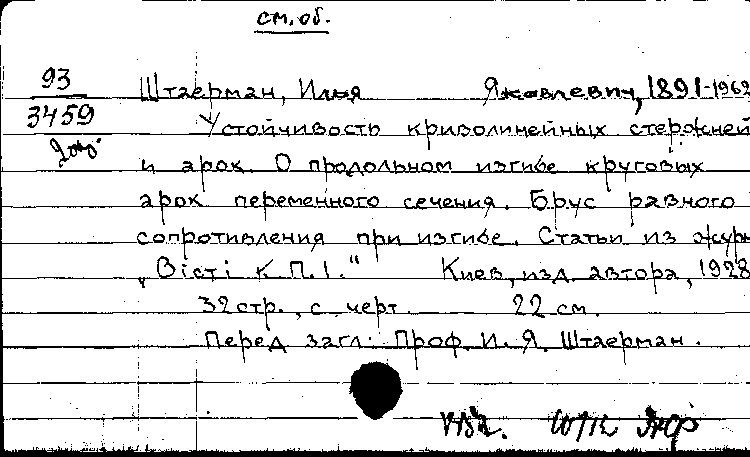 см. об.
93
Штаерман, Илья Яковлевич, 1891-1962
3459
Устойчивость криволинейных стержней
и арок. О продольном изгибе круговых
арок переменного сечения. Брус равного
сопротивления при изгибе. Статьи из журн
„Вісті К.П.І." Киев, изд. автора, 1928
32 стр., с черт. 22 см.
Перед загл.: Проф. И. Я. Штаерман.